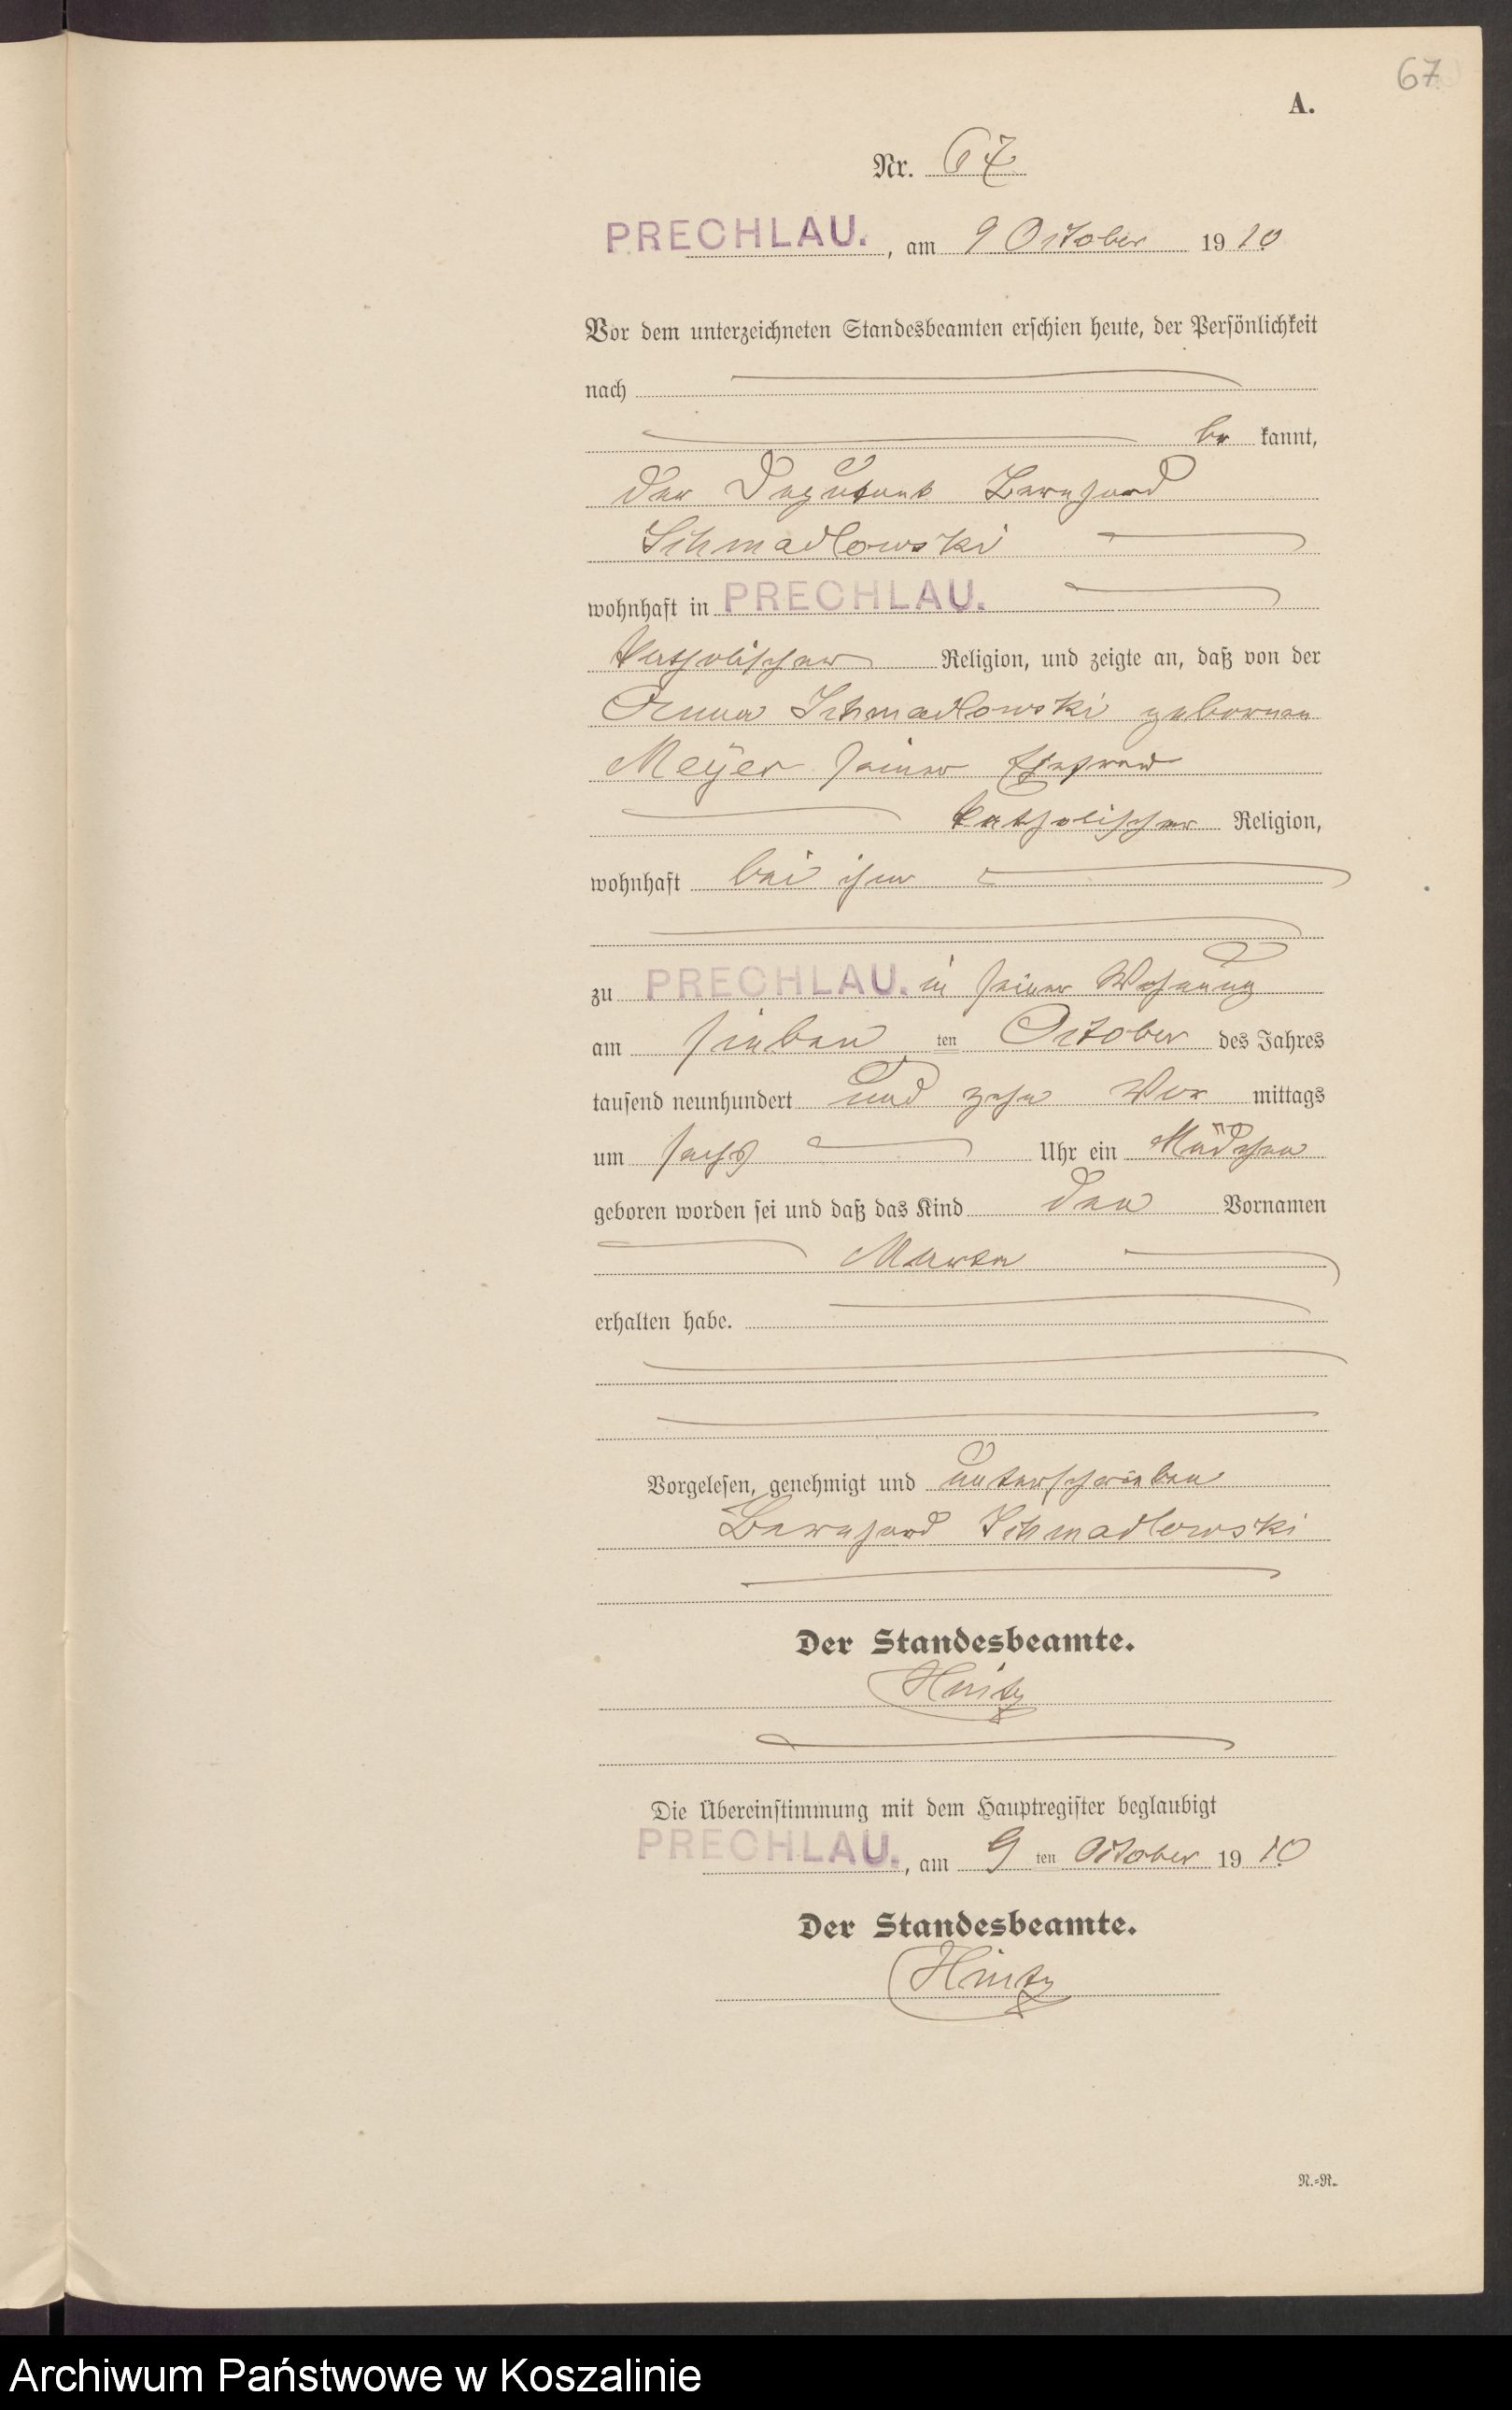 67
A.
Nr. 67
PRECHLAU., am 9 October 1910
Vor dem unterzeichneten Standesbeamten erschien heute, der Persönlichkeit
nach
be kannt,
der Deputant Bernhard
Schmadlowski
wohnhaft in PRECHLAU.
katholischer Religion, und zeigte an, daß von der
Anna Schmadlowski geborenen
Meyer seiner Ehefrau
katholischer Religion,
wohnhaft bei ihm
zu PRECHLAU. in seiner Wohnung
am sieben ten October des Jahres
tausend neunhundert und zehn Vor mittags
um sechs Uhr ein Mädchen
geboren worden sei und daß das Kind den Vornamen
erhalten habe.
Vorgelesen, genehmigt und unterschrieben
Bernhard Schmadlowski
Der Standesbeamte.
Hintz
Die Übereinstimmung mit dem Hauptregister beglaubigt
PRECHLAU., am 9 ten October 1910
Der Standesbeamte.
Hintz
N.=R.
Archiwum Państwowe w Koszalinie